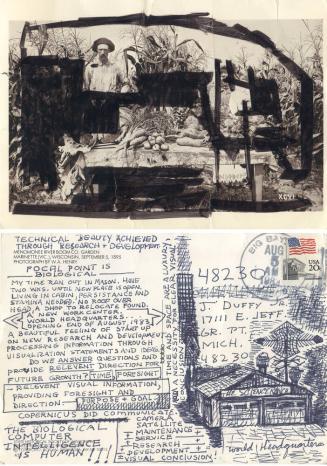 TECHNICAL BEAUTY ACHIEVED
THROUGH RESEARCH + DEVELOPMENT
MENOMONEE RIVER BOOM CO. GARDEN
MARINETTE (VIC.), WISCONSIN, SEPTEMBER 5, 1895
PHOTOGRAPH BY W.A. HENRY
FOCAL POINT IS
BIOLOGICAL
MY TIME RAN OUT IN MASON. HAVE
TWO WKS. UNTIL NEW PLACE IS OPEN.
LIVING IN CABIN, PERSISTANCE AND
STAMINA NEEDED. NO ROOF OVER
HEAD & SHOP TO RELOCATE FOUND.
A NEW WORK CENTER,
A WORLD HEADQUARTERS.
OPENING END OF AUGUST, 1983
A BEAUTIFUL FEELING OF START UP
ON NEW RESEARCH AND DEVELOPMENT
PROCESSING INFORMATION THROUGH
VISUALIZATION STATEMENTS AND IDEAS
DO WE ANSWER QUESTIONS AND
PROVIDE RELEVENT DIRECTION FOR
FUTURE GROWTH? TIME, FORESIGHT
RELEVENT VISUAL INFORMATION,
PROVIDING FORESIGHT AND
DIRECTION PURPOSE + GOAL
COPERNICUS DID COMMUNICATE
THE BIOLOGICAL
COMPUTER
INTELLIGENCE
IS HUMAN!!!!
CAMERA
SATELLITE
MAINTENANCE
SERVICE
RESEARCH
DEVELOPMENT
VISUAL CONCLUSION!
AND A NECESSARY SUPPLEMENT
LUXURY
VISUAL
BIG BA
AUG
USA
20c
48230
J. DUFFY
7111 E. JEFF.
GR. PT. PK.
MICH.
48230
World Headquarters